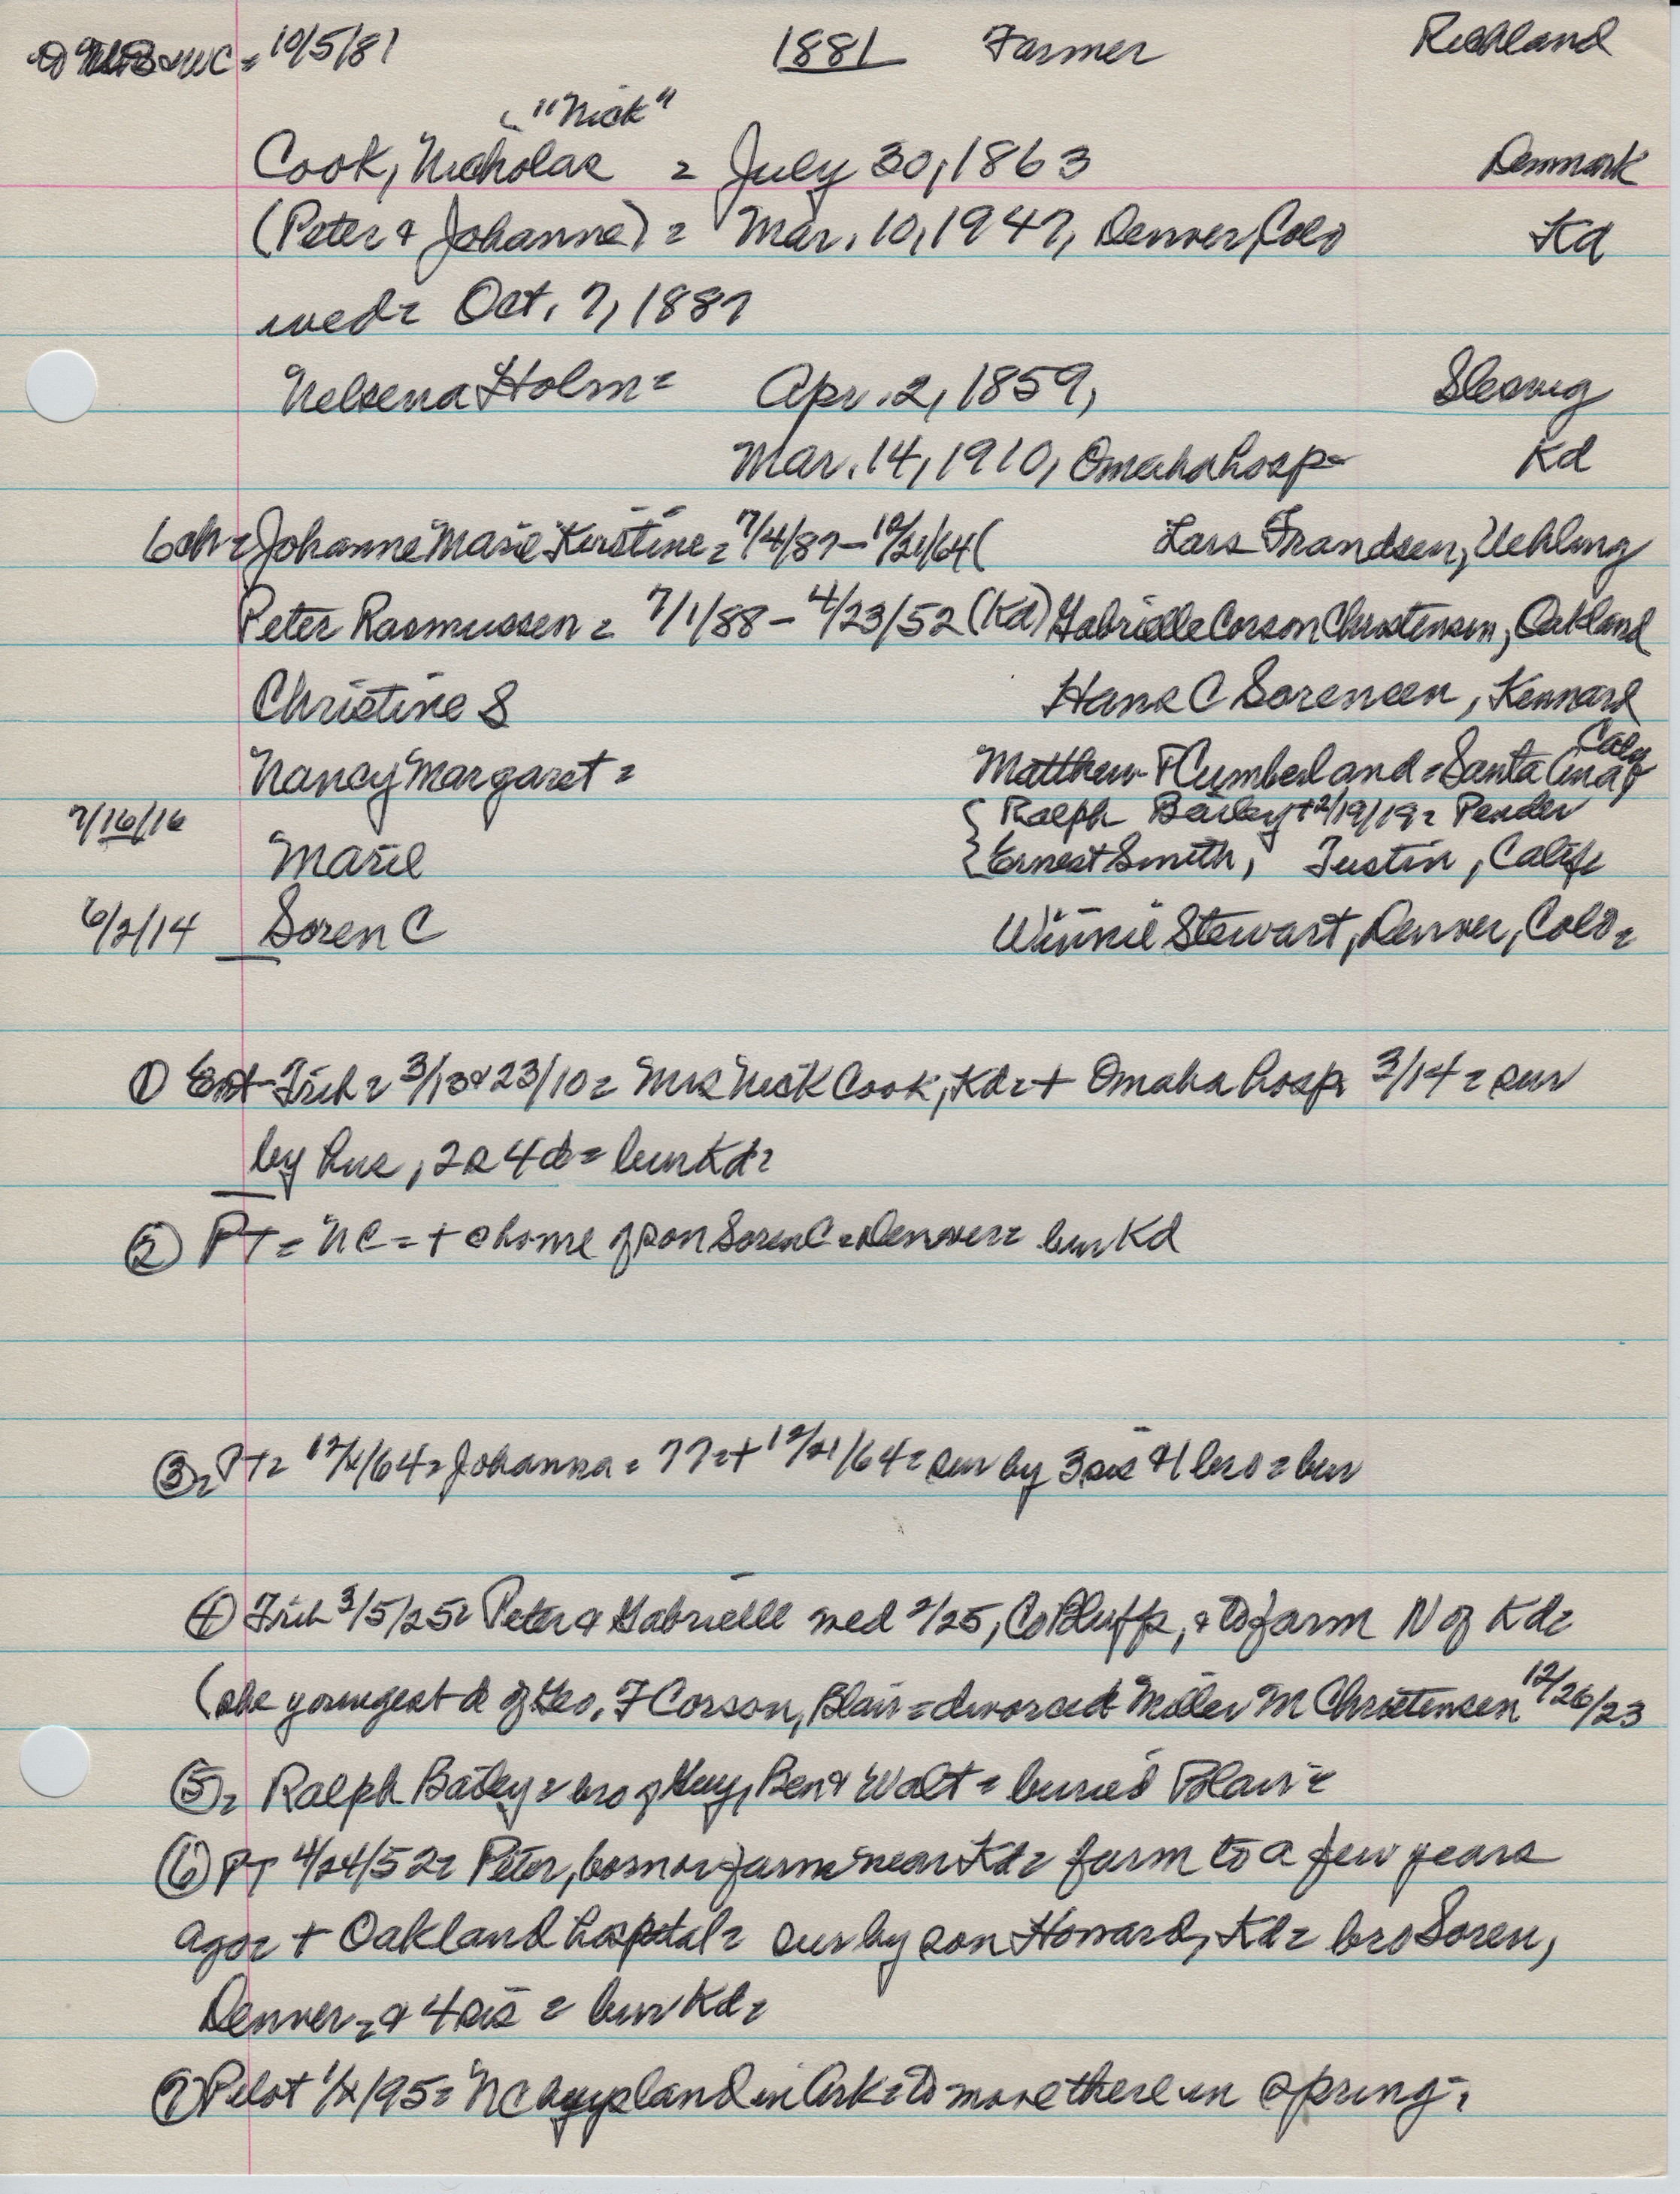 WC = 10/5/81 1881 Farmer Richland
"Nick"
Cook, Nicholas = July 30, 1863 Denmark
(Peter & Johanne) = Mar. 10, 1947, Denver, Colo Kd
wed = Oct. 7, 1887
Nelsena Holm = Apr. 2, 1859, Slesvig
Mar. 14, 1910, Omaha hosp - Kd
6 ch = Johanne Marie Kirstine = 7/4/87 - 12/21/64 ( Lars Frandsen, Uehling
Peter Rasmussen = 7/1/88 - 4/23/52 (Kd) Gabrielle Corson Christensen, Oakland
Christine S Hans C Sorensen, Kennard
Nancy Margaret = Matthew F Cumberland = Santa Ana Calif
7/16/16 { Ralph Bailey + 2/19/19 = Pender
Marie { Ernest Smith, Tustin, Calif
6/2/14 Soren C Winnie Stewart, Denver, Colo =
① Ent - Trib = 3/13 & 23/10 = Mrs Nick Cook, Kd = + Omaha hosp 3/14 = sur
by hus, 2 s 4 d = bur Kd =
② PT = NC = + @ home of son Soren C = Denver = bur Kd
③ = PT = 12/ /64 = Johanna = 77 = + 12/21/64 = sur by 3 sis & 1 bro = bur
④ Trib 3/5/25 = Peter & Gabrielle wed 2/25, Co Bluffs, & to farm N of Kd =
(she youngest d of Geo. F Corson, Blair = divorced Miller M Christensen 12/26/23
⑤ = Ralph Bailey = bro of Guy, Ben & Walt = buried Blair =
⑥ PT 4/24/52 = Peter, born on farm near Kd = farm to a few years
ago = + Oakland hospital = sur by son Howard, Kd = bro Soren,
Denver = & 4 sis = bur Kd =
⑦ Pilot 1/ /95 = NC buys land in Ark = to move there in spring =